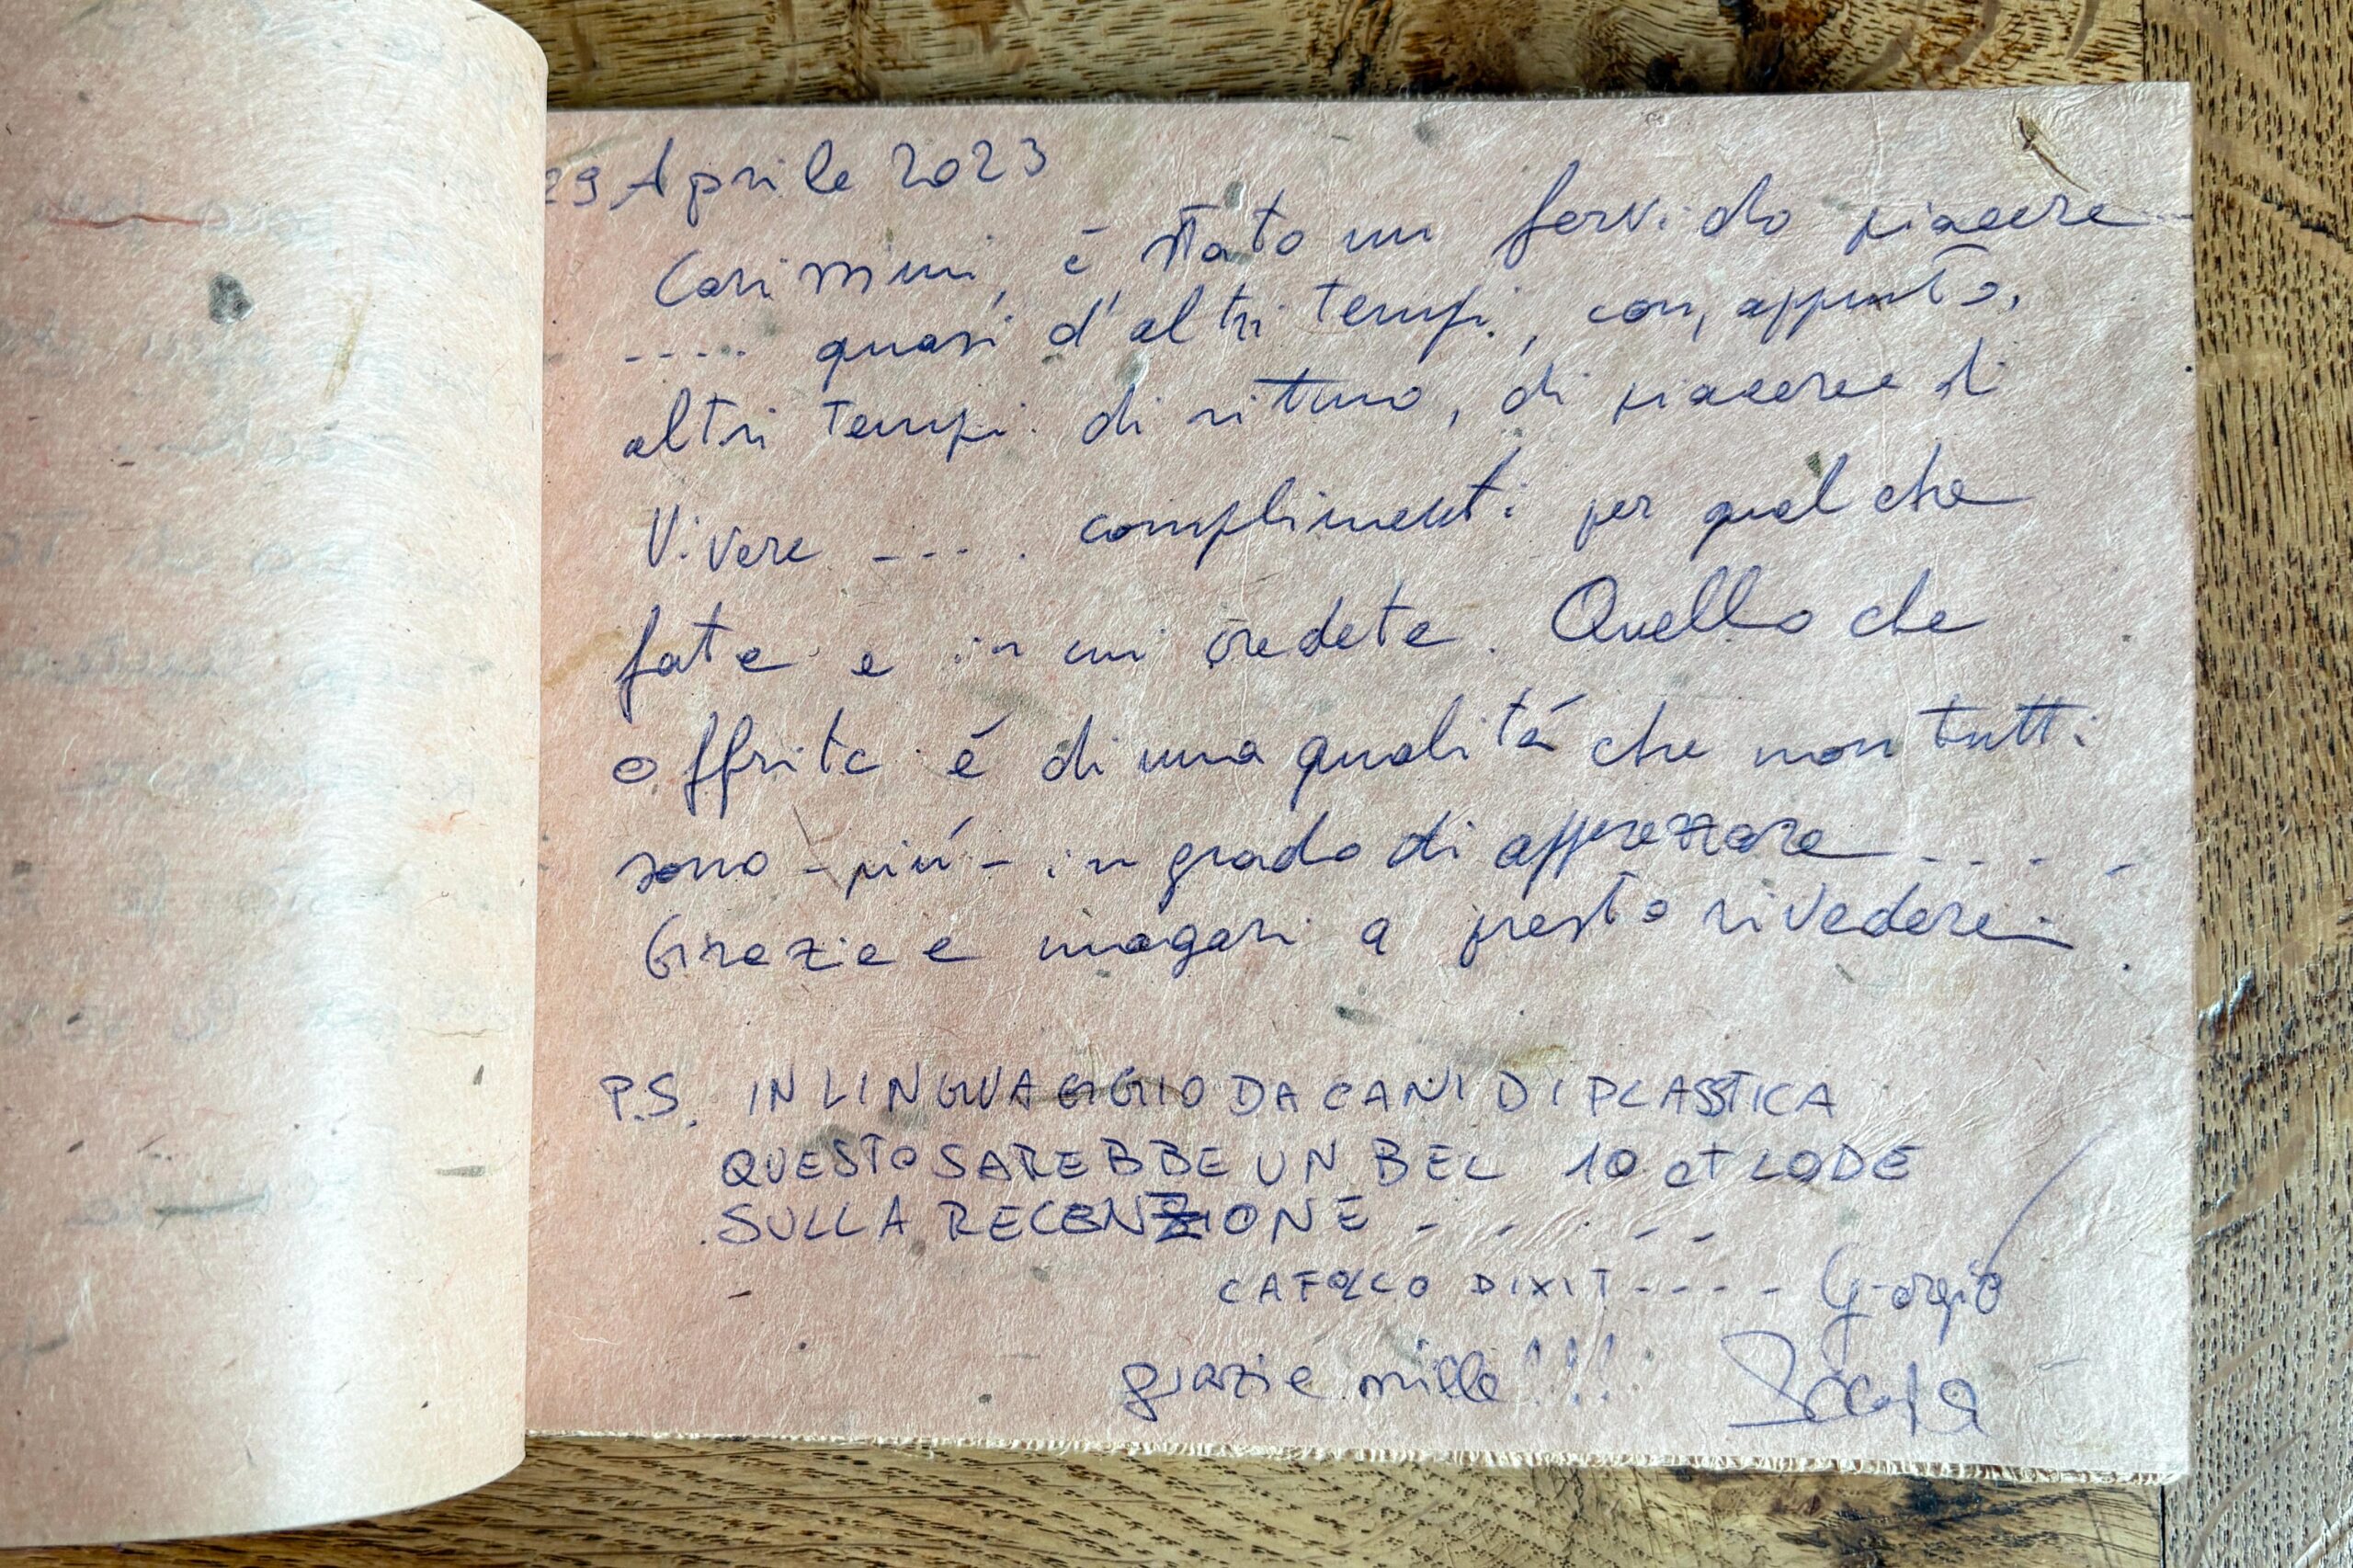 29 Aprile 2023
Carissimi, è stato un fervido piacere
..... quasi d'altri tempi, con, appunto,
altri tempi di ritmo, di piacere di
Vivere ----. complimenti per quel che
fate e in cui credete. Quello che
offrite é di una qualitá che non tutti
sono - piú - in grado di apprezzare - - - -
Grazie e magari a presto rivederci.
P.S. IN LINGUAGGIO DA CANI DI PLASTICA
QUESTO SAREBBE UN BEL 10 et LODE
SULLA RECENZIONE - - - - -
DIXIT ---- Giorgio
grazie mille!!!